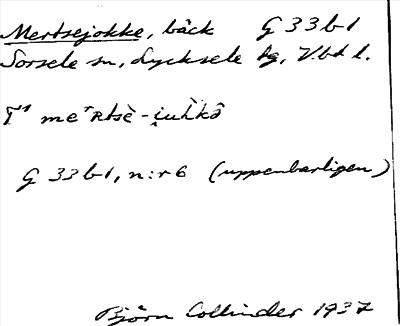 Mertsejokke, bäck G 33 b 1
Sorsele sn, Lycksele lg, V.bd l.
G 33 b 1, n:r 6 (uppenbarligen)
Björn Collinder 1937